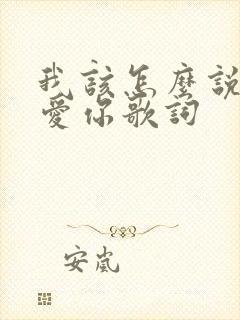 我該怎麼說
愛你歌詞
安嵐